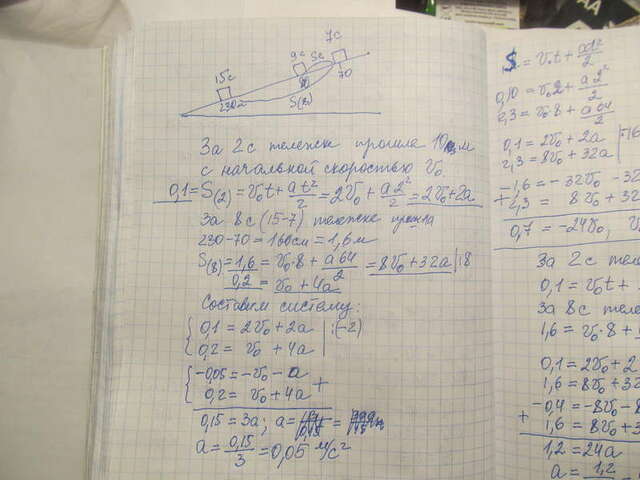 7с
9с 5с
15с
80 70
230 S(8)
За 2с тележка прошла 10 м
с начальной скоростью v₀
0,1=S(2)=v₀t+at²/2=2v₀+a2²/2=2v₀+2a
За 8с (15-7) тележка прошла
230-70=160см=1,6м
S(8)=1,6=v₀·8+a64/2=8v₀+32a |:8
0,2=v₀+4a
Составим систему:
0,1=2v₀+2a |:(-2)
0,2=v₀+4a
-0,05=-v₀-a
0,2=v₀+4a +
0,15=3a; a=
a=0,15/3=0,05 м/с²
S=v₀t+at²/2
0,10=v₀2+a2²/2
2,3=v₀8+a64/2
0,1=2v₀+2a
2,3=8v₀+32a
-1,6=-32v₀-32
+2,3=8v₀+32
0,7=-24v₀,
За 2с теле
0,1=v₀t+
За 8с теле
1,6=v₀·8+
0,1=2v₀+2
1,6=8v₀+32
-0,4=-8v₀-8
+1,6=8v₀+3
1,2=24a
a=1,2